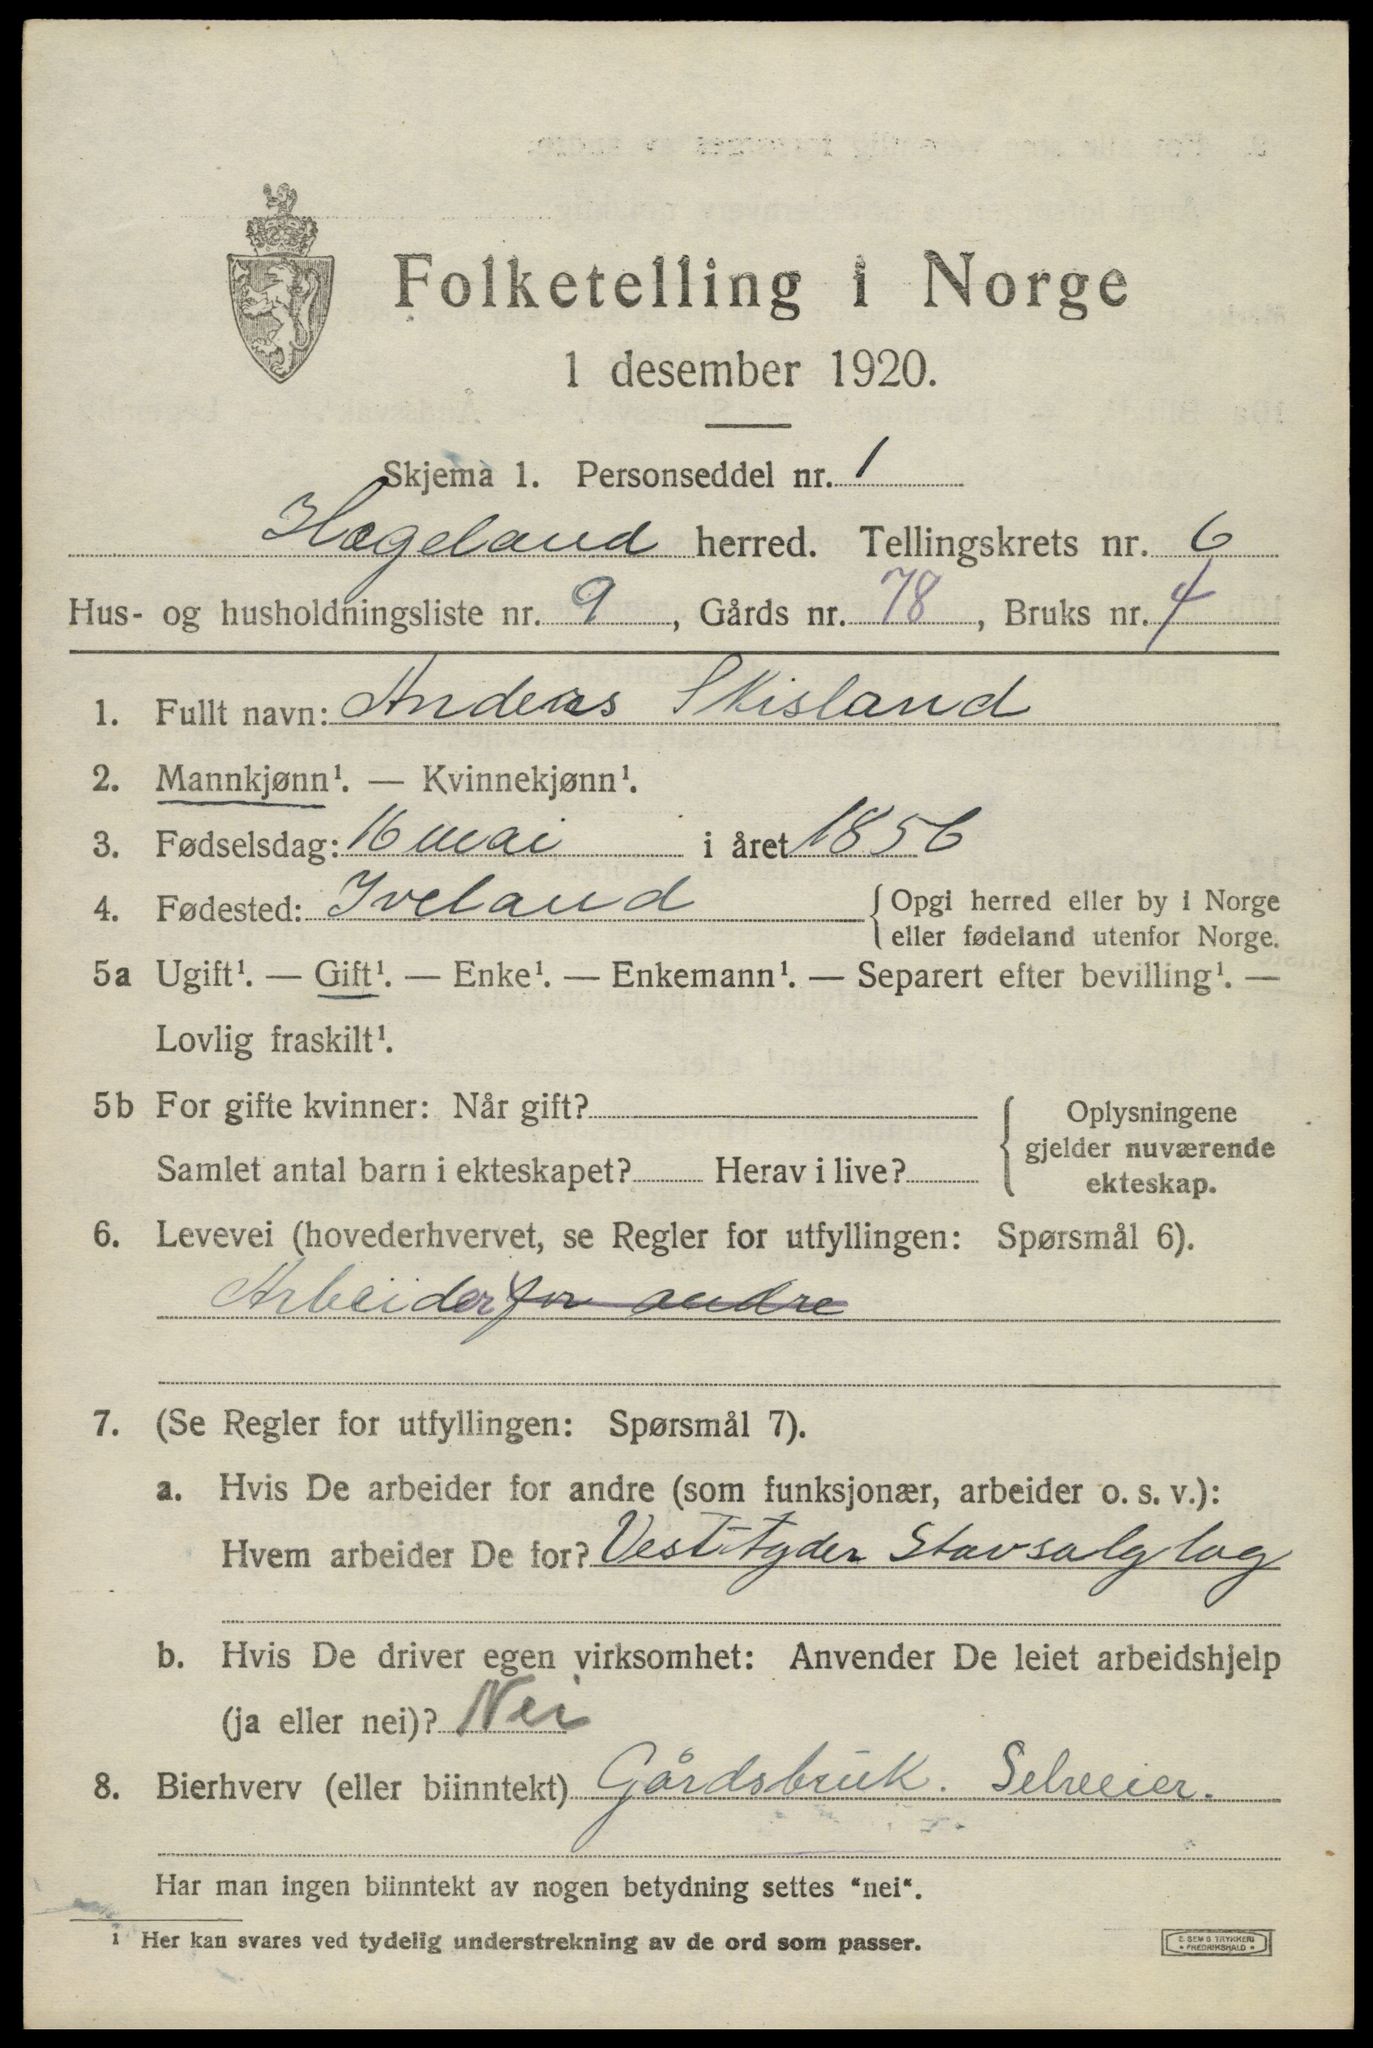 Folketelling i Norge
1 desember 1920.
Skjema 1. Personseddel nr. 1
Hægeland herred. Tellingskrets nr. 6
Hus- og husholdningsliste nr. 9, Gårds nr. 78, Bruks nr. 4
1. Fullt navn: Anders Skisland
2. Mannkjønn¹. — Kvinnekjønn¹.
3. Fødselsdag: 16 mai i året 1856
4. Fødested: Iveland {Opgi herred eller by i Norge
eller fødeland utenfor Norge.
5a Ugift¹. — Gift¹. — Enke¹. — Enkemann¹. — Separert efter bevilling¹. —
Lovlig fraskilt¹.
5b For gifte kvinner: Når gift? { Oplysningene
gjelder nuværende
Samlet antal barn i ekteskapet? Herav i live? ekteskap.
6. Levevei (hovederhvervet, se Regler for utfyllingen: Spørsmål 6).
Arbeider for andre
7. (Se Regler for utfyllingen: Spørsmål 7).
a. Hvis De arbeider for andre (som funksjonær, arbeider o. s. v.):
Hvem arbeider De for? Vest-Agder Stavsalglag
b. Hvis De driver egen virksomhet: Anvender De leiet arbeidshjelp
(ja eller nei)? Nei
8. Bierhverv (eller biinntekt) Gårdsbruk. Selveier.
Har man ingen biinntekt av nogen betydning settes "nei".
¹ Her kan svares ved tydelig understrekning av de ord som passer.
E. SEMS TRYKKERI
* FREDRIKSHALD *